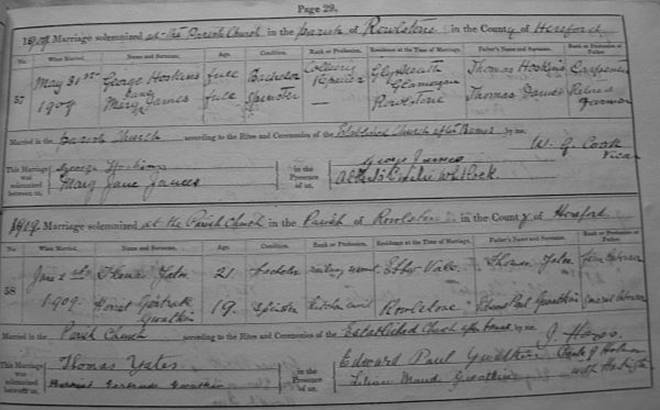 Page 29.
1909 Marriage solemnized at the Parish Church in the parish of Rowlstone in the County of Hereford
No. When Married. Name and Surname. Age. Condition. Rank or Profession. Residence at the Time of Marriage. Father's Name and Surname. Rank or Profession of Father.
57 May 31st George Hoskins full Bachelor Colliery Repairer Glyn Glamorgan Thomas Hoskins Carpenter
1909 Mary Jane James full Spinster — Rowlstone Thomas James Retired Farmer
Married in the parish Church according to the Rites and Ceremonies of the Established Church after Banns by me,
W. G. Cook
Vicar
This Marriage was solemnized between us, George Hoskins in the Presence of us, George James
Mary Jane James
1909. Marriage solemnized at the Parish Church in the Parish of Rowlstone in the County of Hereford
No. When Married. Name and Surname. Age. Condition. Rank or Profession. Residence at the Time of Marriage. Father's Name and Surname. Rank or Profession of Father.
58 June Thomas 21. bachelor railway Ebbw Vale Thomas
1909. Gertrude Gwatkin 19. Spinster Rowlstone Edward Paul Gwatkin
Married in the Parish Church according to the Rites and Ceremonies of the Established Church after banns by me,
This Marriage was solemnized between us, Thomas Yates in the Presence of us, Edward Paul Gwatkin
Gertrude Gwatkin Lilian Maud Gwatkin